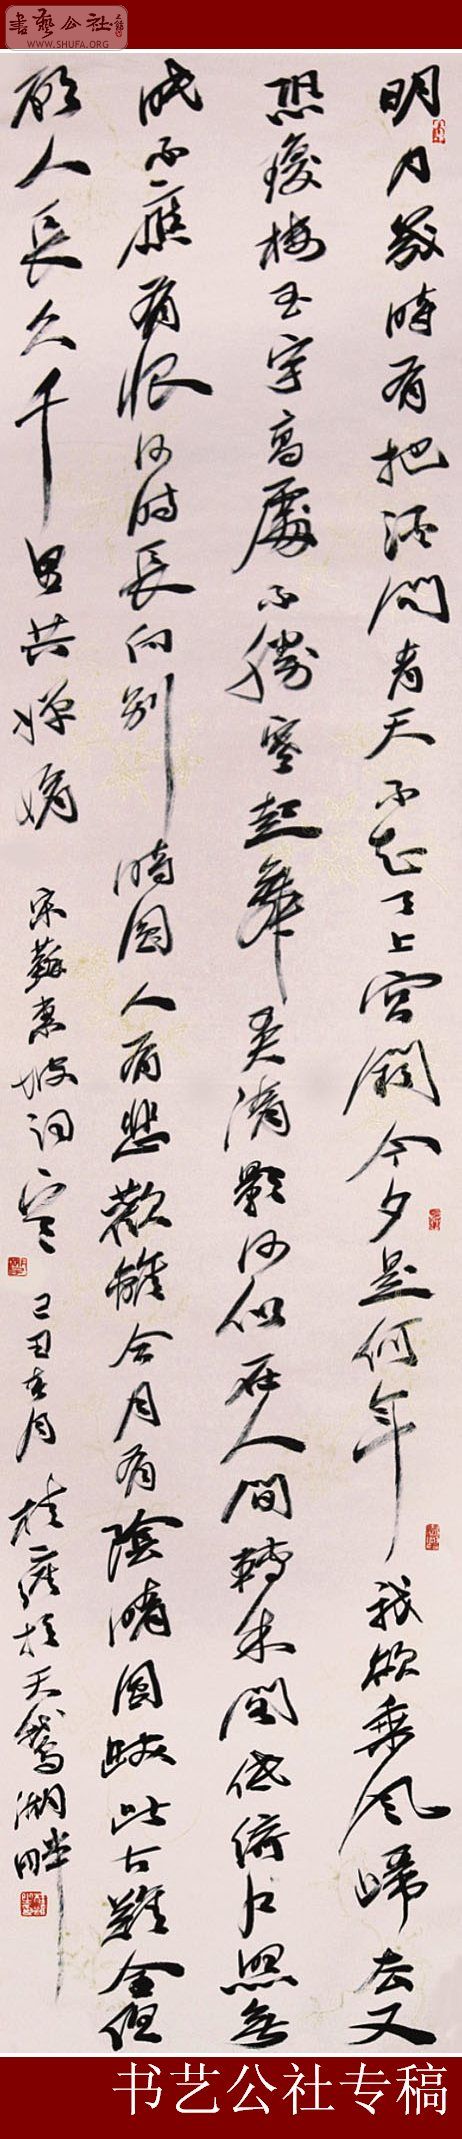 書藝公社
WWW.SHUFA.ORG
明月幾時有把酒問青天不知天上宮闕今夕是何年我欲乘風歸去又
恐瓊樓玉宇高處不勝寒起舞弄清影何似在人間轉朱閣低綺户照無
眠不應有恨何時長向別時圓人有悲歡離合月有陰晴圓缺此古難全但
願人長久千里共嬋娟 宋蘇東坡詞 己丑春月 桂雍於天鵝湖畔
书艺公社专稿